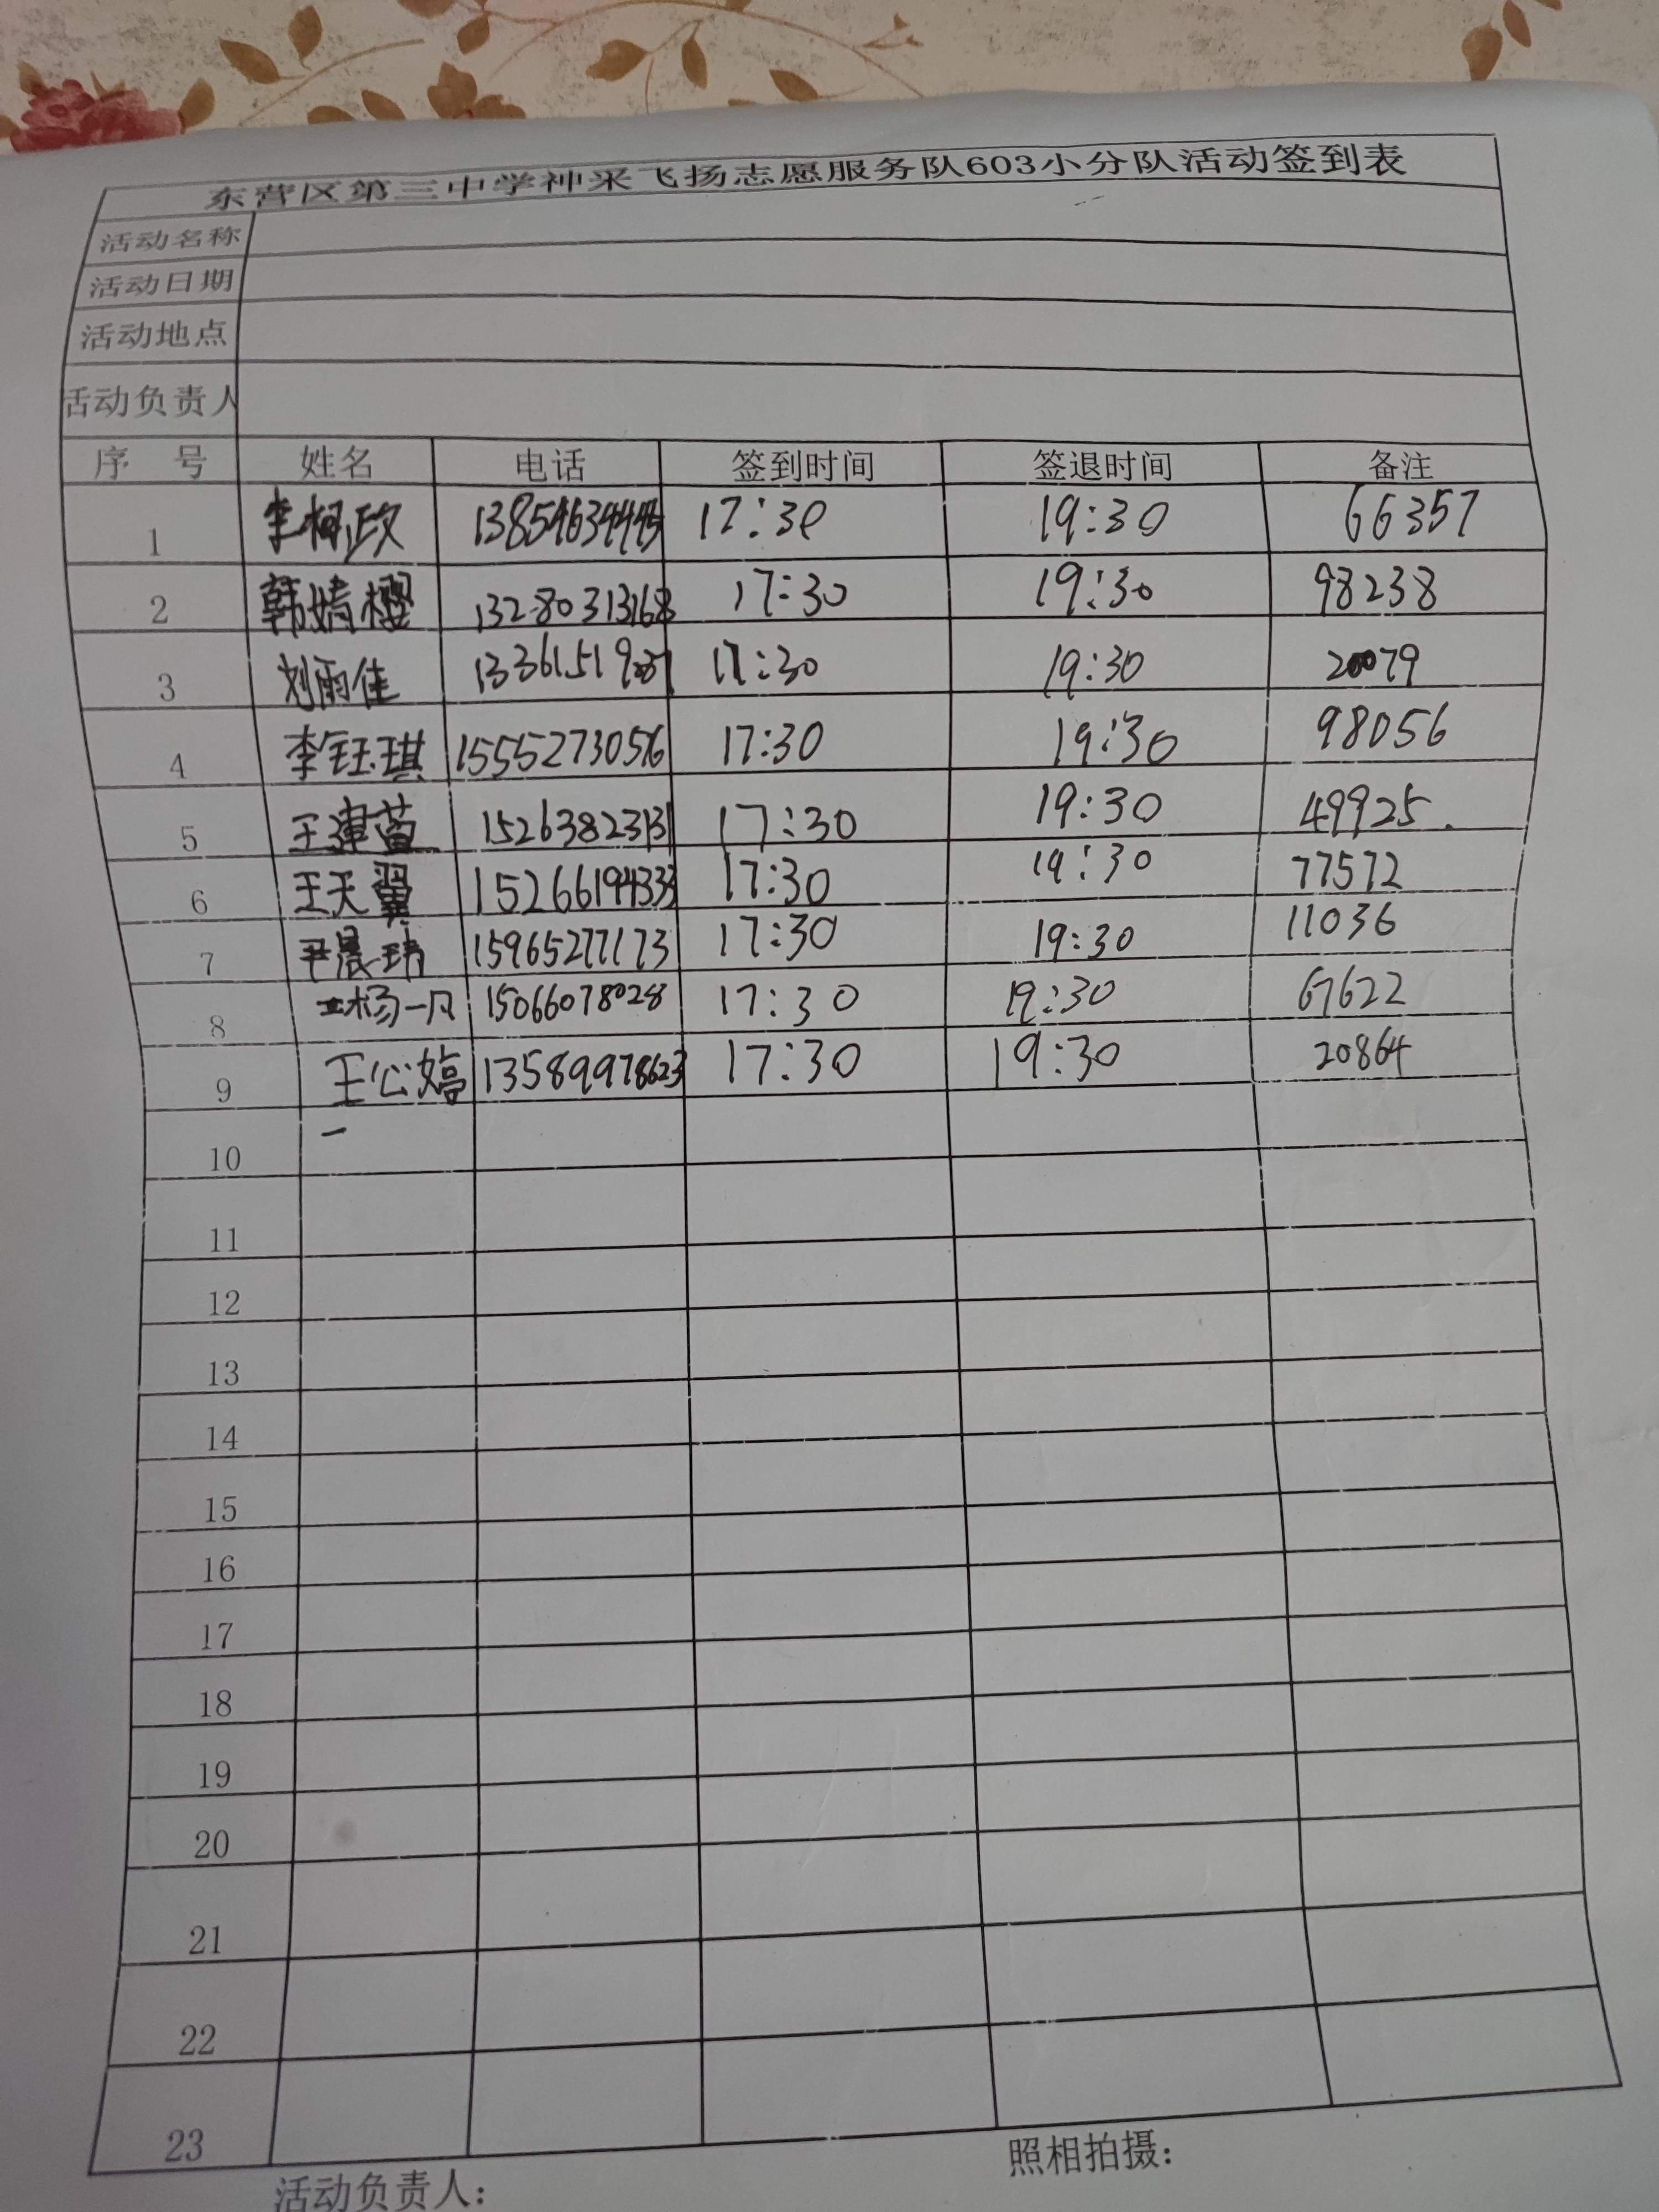 东营区第三中学神采飞扬志愿服务队603小分队活动签到表
活动名称
活动日期
活动地点
活动负责人
序 号 姓名 电话 签到时间 签退时间 备注
1 李柯政 17:30 19:30 66357
2 韩婧樱 13280313168 17:30 19:30 98238
3 刘雨佳 17:30 19:30 20079
4 李钰琪 15552730576 17:30 19:30 98056
5 王建萱 15263823131 17:30 19:30 49925
6 王天翼 15266194333 17:30 19:30 77572
7 尹晨玮 15965277173 17:30 19:30 11036
8 杨一凡 15066078028 17:30 19:30 67622
9 王公婷 13589978623 17:30 19:30 20864
10
11
12
13
14
15
16
17
18
19
20
21
22
23
活动负责人: 照相拍摄: